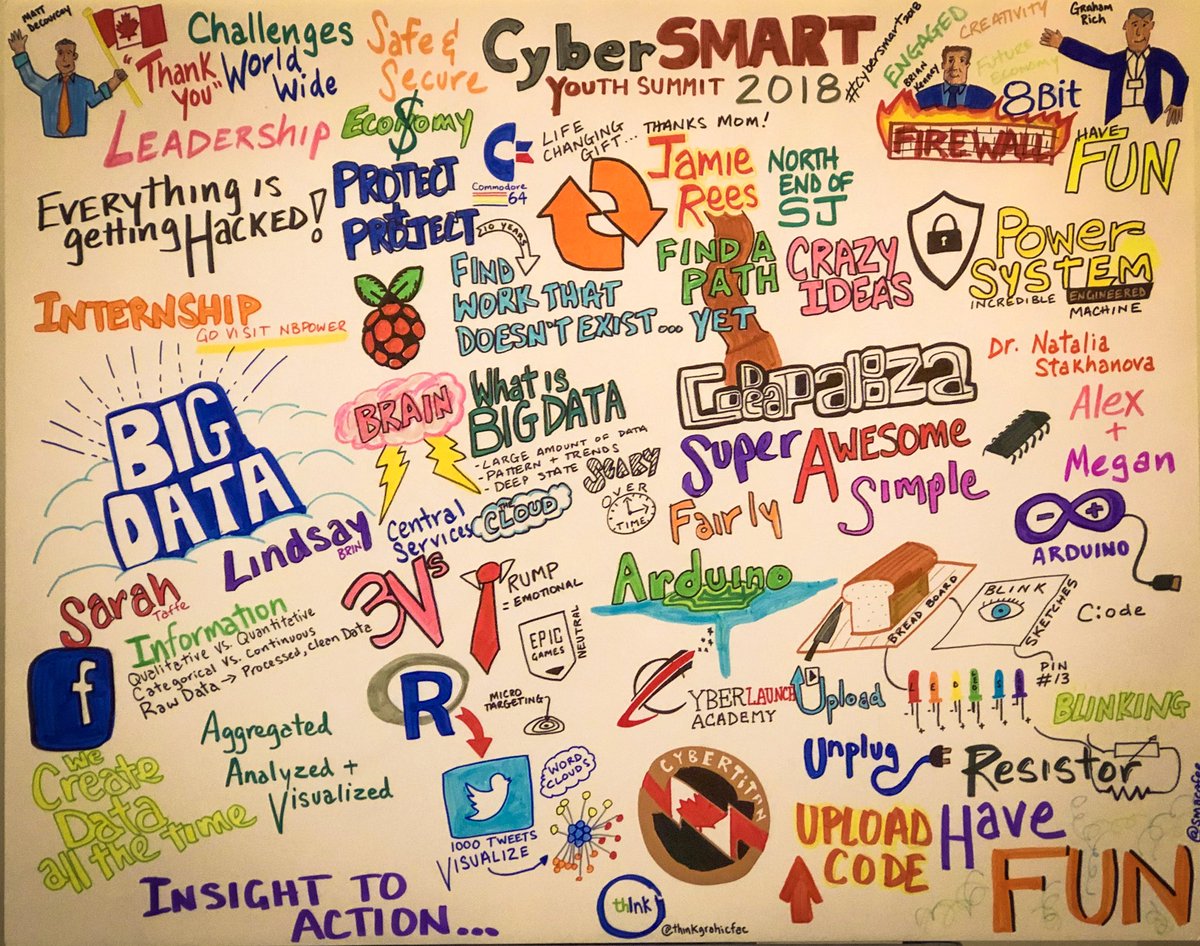 MATT DeCOURCEY
"Thank You"
Challenges
World
Wide
Safe &
Secure
CyberSMART
YOUTH SUMMIT 2018
#cybersmart2018
ENGAGED
CREATIVITY
Future
Economy
BRIAN
Kenny
8Bit
FIREWALL
Graham
Rich
HAVE
FUN
LEADERSHIP
Economy
$
EVERYTHING IS
getting HACKED!
PROTECT
+
PROJECT
C
Commodore
64
LIFE
CHANGING
GIFT...
THANKS MOM!
Jamie
Rees
NORTH
END OF
SJ
10 YEARS
FIND
WORK THAT
DOESN'T EXIST... YET
FIND A
PATH
CRAZY
IDEAS
POWER
SYSTEM
INCREDIBLE
ENGINEERED
MACHINE
INTERNSHIP
GO VISIT NBPOWER
BIG
DATA
BRAIN
What is
BIG DATA
- LARGE AMOUNT OF DATA
- PATTERN + TRENDS
- DEEP STATE
SCARY
OVER
TIME
Central
Services
THE CLOUD
CODEapalooza
Super Awesome
Fairly Simple
Dr. Natalia
Stakhanova
Alex
+
Megan
ARDUINO
Lindsay
BRIN
Sarah
Taffe
Information
Qualitative vs. Quantitative
Categorical vs. Continuous
Raw Data → Processed, clean Data
3V's
TRUMP
= EMOTIONAL
EPIC
GAMES
NEUTRAL
Arduino
BREAD BOARD
BLINK
SKETCHES
C:ode
f
R
MICRO
TARGETING
CYBERLAUNCH
ACADEMY
Upload
LEDS
PIN
#13
BLINKING
Aggregated
Analyzed +
Visualized
We
Create
Data
all the time
WORD
CLOUDS
1000 TWEETS
VISUALIZE
CYBERTITAN
Unplug
Resistor
UPLOAD
CODE
Have
FUN
INSIGHT TO
ACTION...
thInk
@thinkgrahicfac